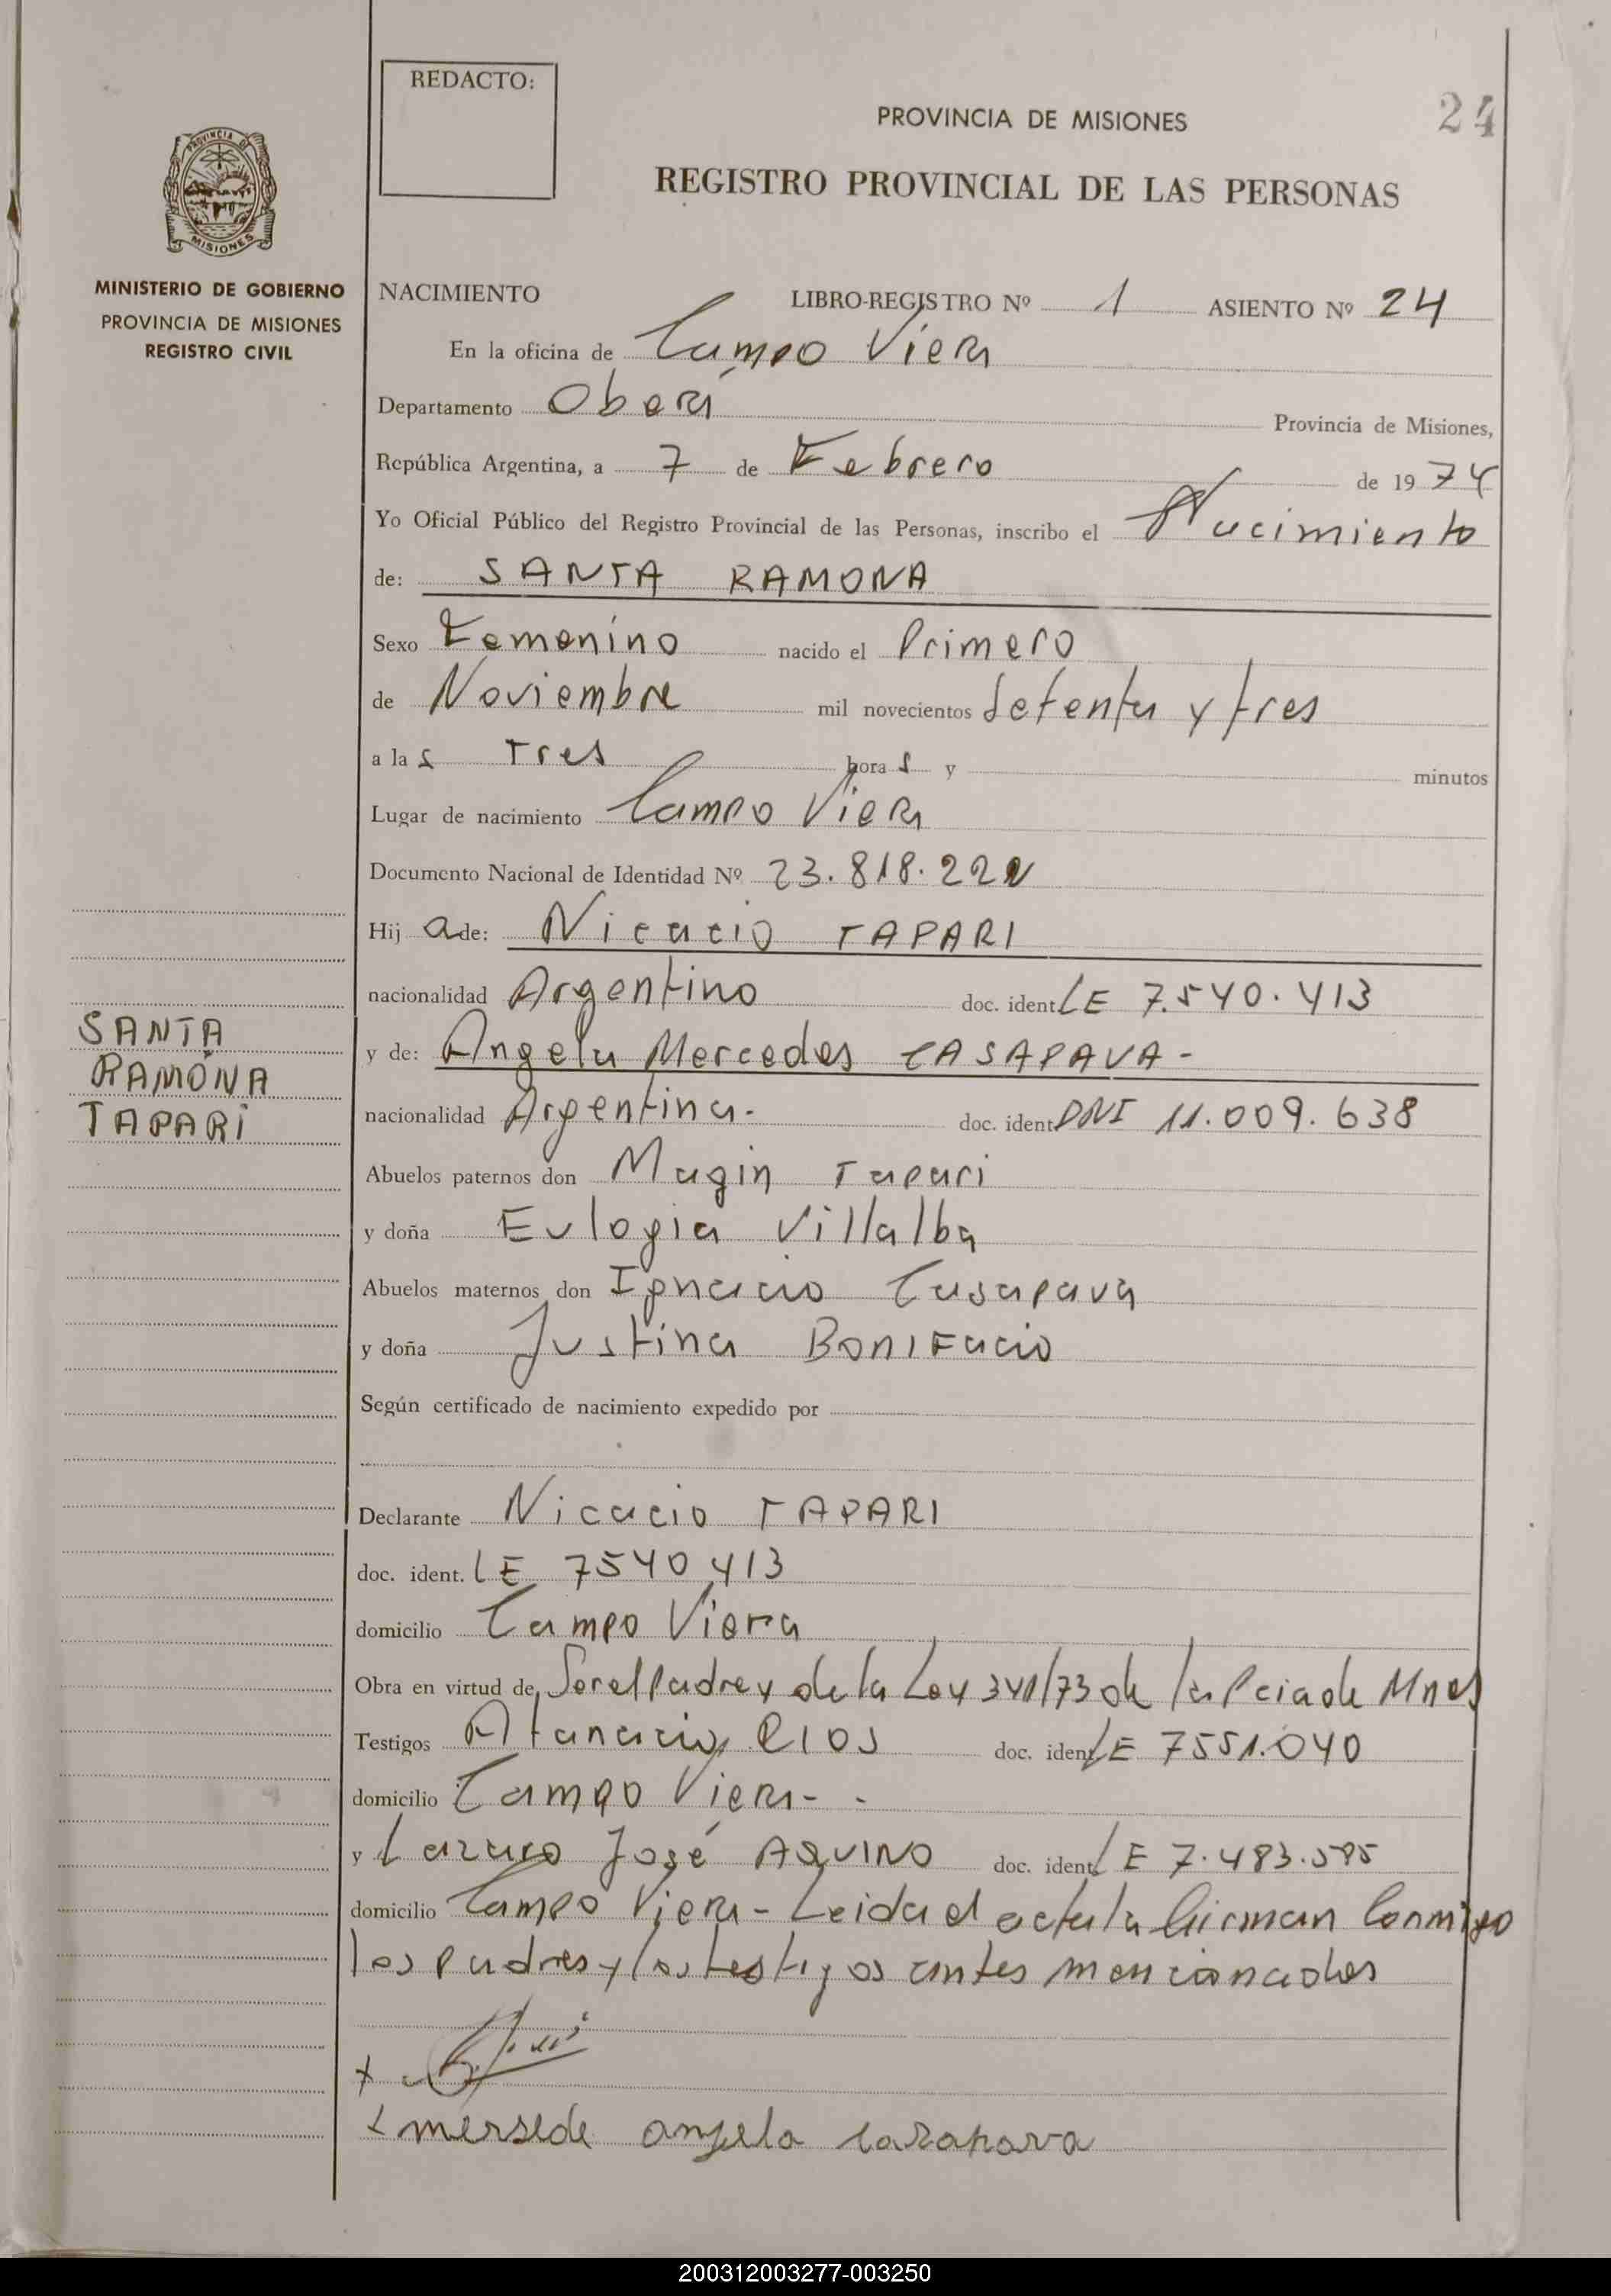 REDACTO:
PROVINCIA DE MISIONES
24
REGISTRO PROVINCIAL DE LAS PERSONAS
PROVINCIA DE
MISIONES
MINISTERIO DE GOBIERNO
PROVINCIA DE MISIONES
REGISTRO CIVIL
NACIMIENTO LIBRO-REGISTRO Nº 1 ASIENTO Nº 24
En la oficina de Campo Viera
Departamento Oberá Provincia de Misiones,
República Argentina, a 7 de Febrero de 1974
Yo Oficial Público del Registro Provincial de las Personas, inscribo el Nacimiento
de: SANTA RAMONA
Sexo Femenino nacido el Primero
de Noviembre mil novecientos setenta y tres
a la s Tres hora s y minutos
Lugar de nacimiento Campo Viera
Documento Nacional de Identidad Nº 23.818.222
Hij a de: Nicacio TAPARI
nacionalidad Argentino doc. ident. LE 7.540.413
SANTA
RAMONA
TAPARI
y de: Angela Mercedes CASAPAVA -
nacionalidad Argentina. doc. ident. DNI 11.009.638
Abuelos paternos don Magin Tapari
y doña Eulogia Villalba
Abuelos maternos don Ignacio Casapava
y doña Justina BONIFacio
Según certificado de nacimiento expedido por
Declarante Nicacio TAPARI
doc. ident. LE 7540413
domicilio Campo Viera
Obra en virtud de Ser el Padre y de la Ley 341/73 de la Pcia de Mnes
Testigos Atanacio RIOS doc. ident. LE 7551.040
domicilio Campo Viera - -
y Lazaro José AQUINO doc. ident. LE 7.483.595
domicilio Campo Viera - Leida el acta la firman Conmigo
los padres y los testigos antes mencionados
x
x mersede angela casapava
200312003277-003250